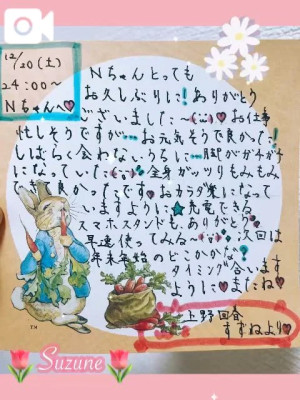 12/20(土)
24:00〜
Nちゃんへ♥
Nちゃんとっても
お久しぶりに!ありがとう
ございました!お仕事
忙しそうですが…お元気そうで良かった!
しばらく会わないうちに…脚がガチガチ
になっていた 全身ガッツリもみもみ
でき良かったです。おカラダ楽になって
いますように★充電できる
スマホスタンドも、ありがとう
早速使ってみる〜 次回は
年末年始のどこかかな?
タイミング合います
ように♥またね♥
上野回春
すずねより♥
TM
Suzune